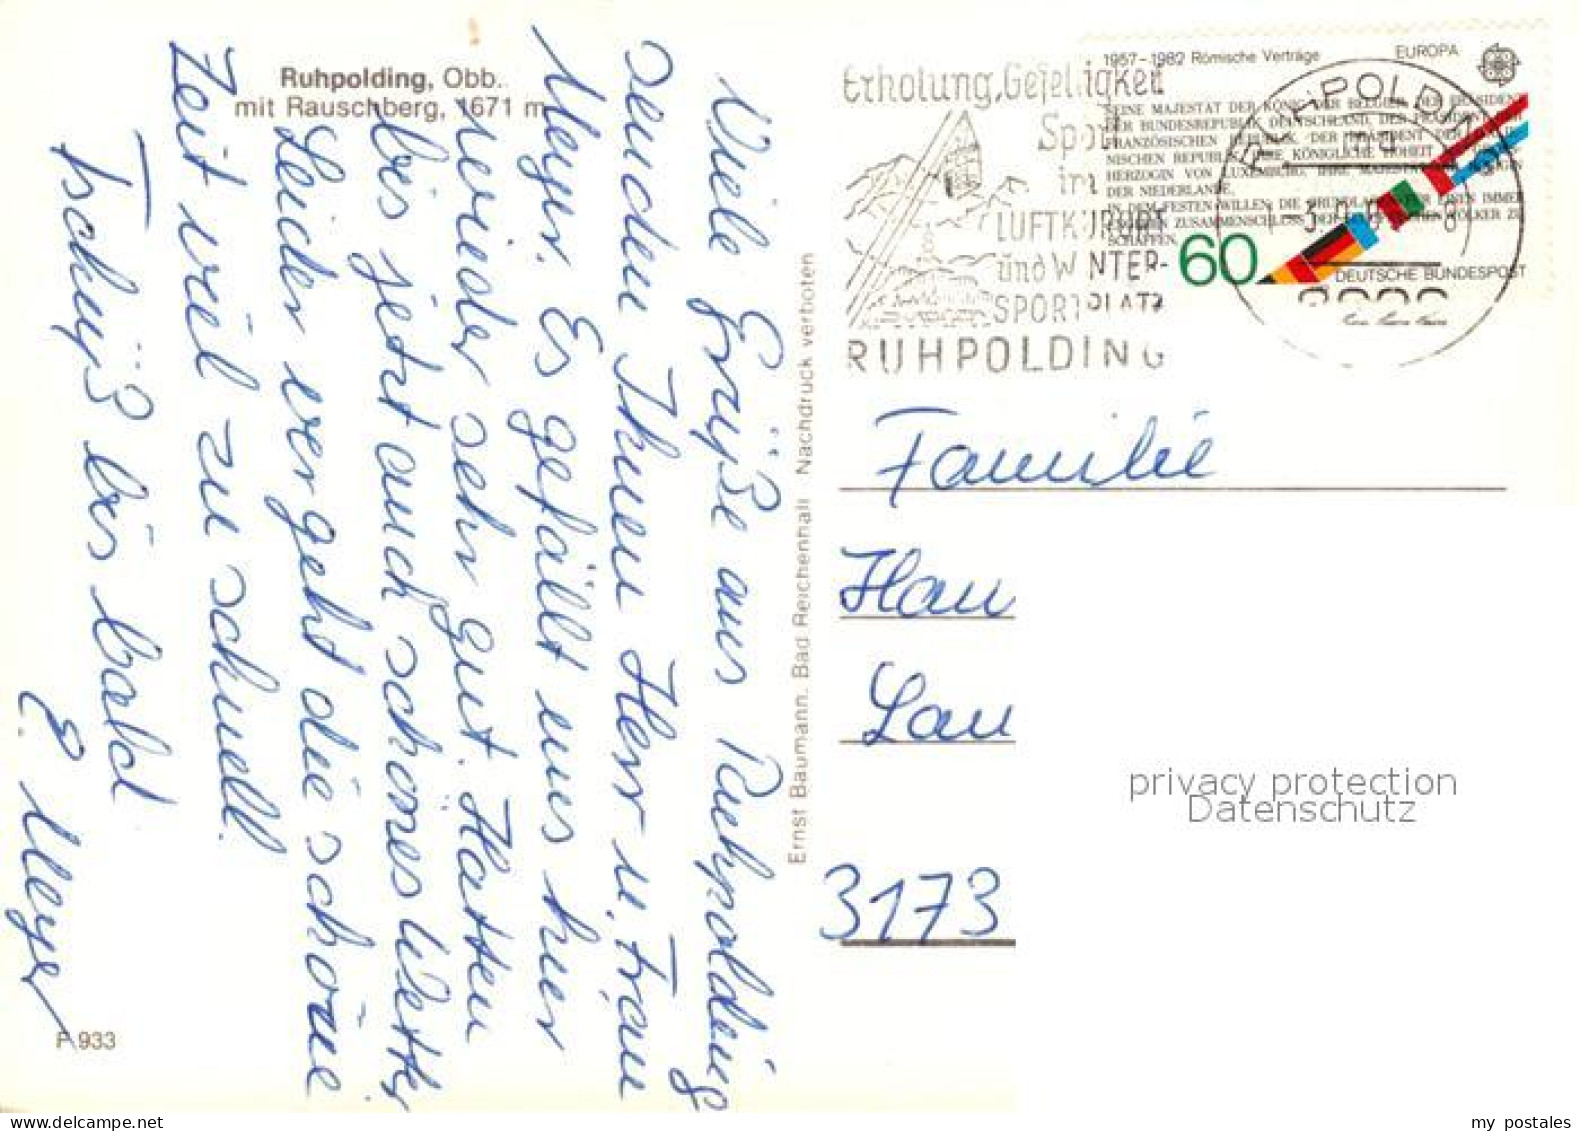 Ruhpolding, Obb.
mit Rauschberg, 1671 m
Viele Grüße aus Ruhpolding
senden Ihnen Herr u. Frau
Meyer. Es gefällt uns hier
wieder sehr gut. Hatten
bis jetzt auch schönes Wetter.
Leider vergeht die schöne
Zeit viel zu schnell.
Tschüß bis bald
E. Meyer
F 933
Ernst Baumann, Bad Reichenhall Nachdruck verboten
Erholung, Geselligkeit
Sport
im
LUFTKURORT
und WINTER-
SPORTPLATZ
RUHPOLDING
1957-1982 Römische Verträge
EUROPA
SEINE MAJESTÄT DER KÖNIG DER BELGIER, DER PRÄSIDENT
DER BUNDESREPUBLIK DEUTSCHLAND, DER PRÄSIDENT DER
FRANZÖSISCHEN REPUBLIK, DER PRÄSIDENT DER ITALIE-
NISCHEN REPUBLIK, IHRE KÖNIGLICHE HOHEIT
HERZOGIN VON LUXEMBURG, IHRE MAJESTÄT DIE KÖNIGIN
DER NIEDERLANDE,
IN DEM FESTEN WILLEN, DIE GRUNDLAGEN FÜR EINEN IMMER
ENGEREN ZUSAMMENSCHLUSS DER EUROPÄISCHEN VÖLKER ZU
SCHAFFEN,
60
DEUTSCHE BUNDESPOST
RUHPOLDING
Familie
Han
Lan
3173
privacy protection
Datenschutz
my postales